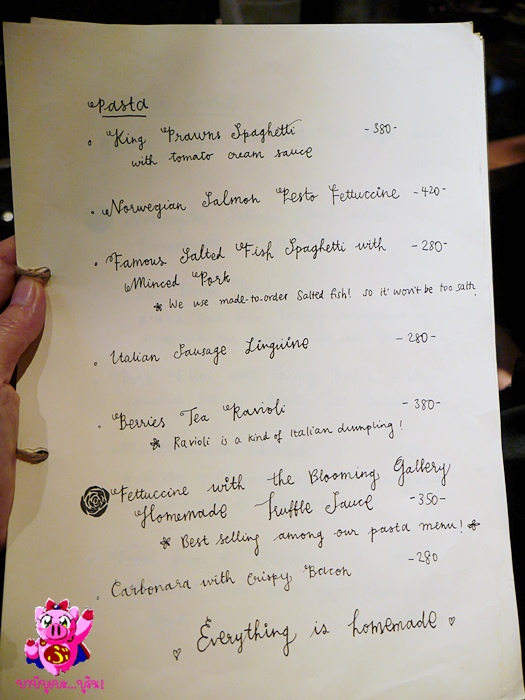 Pasta
King Prawns Spaghetti -380-
with tomato cream sauce
Norwegian Salmon Pesto Fettuccine -420-
Famous Salted Fish Spaghetti with -280-
Minced Pork
* We use made-to-order Salted fish! so it won't be too salty
Italian Sausage Linguine -280-
Berries Tea Ravioli -380-
* Ravioli is a kind of Italian dumpling!
Fettuccine with the Blooming Gallery
Homemade Truffle Sauce -350-
* Best selling among our pasta menu! *
Carbonara with crispy Bacon -280
♡ Everything is homemade ♡